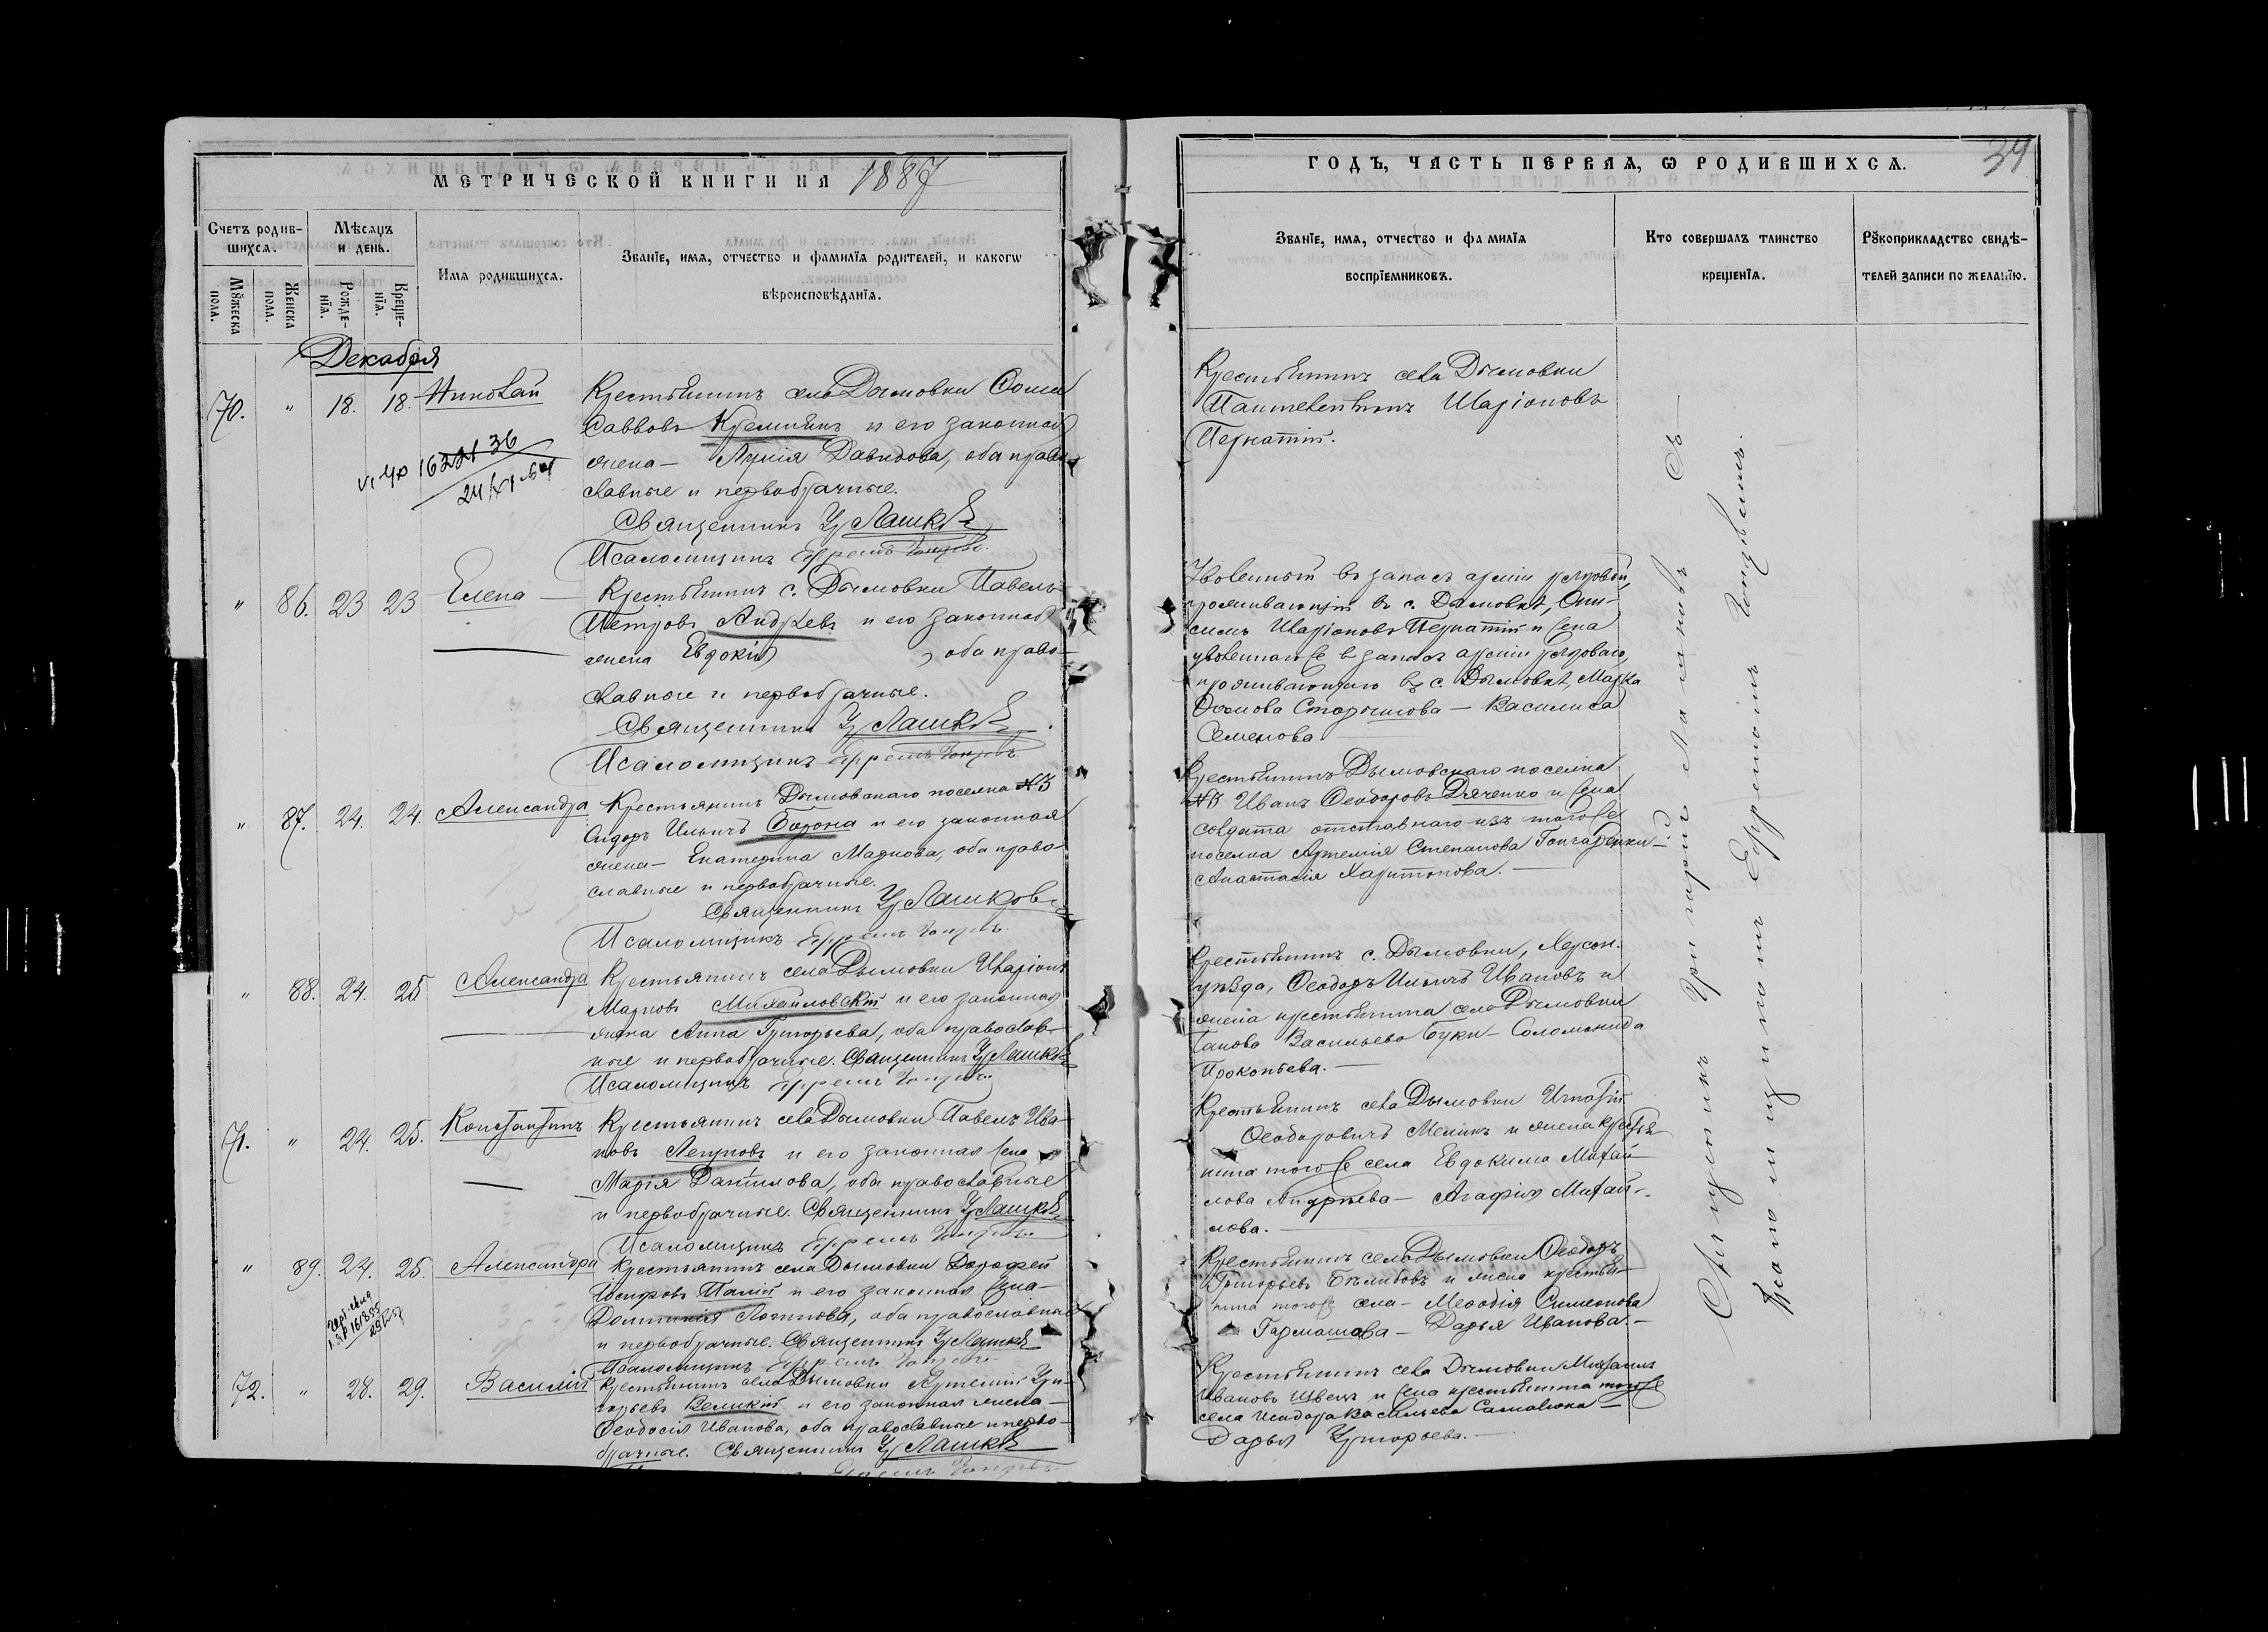 МЕТРИЧЕСКОЙ КНИГИ НА 1887
Счетъ родив-
шихсѧ.
Мѣсѧцъ
и день.
Имѧ родившихсѧ.
Званїе, имѧ, отчество и фамилїѧ родителей, и какогѡ
вѣроисповѣданїѧ.
Мꙋжеска
пола.
Женска
пола.
Рожде-
нїѧ.
Креще-
нїѧ.
Декабря
70. " 18. 18. Николай
Крестьянинъ села Дымовки Ѳома
Саввовъ Кремин и его законная
жена — Лукія Давидова, оба право-
славные и первобрачные.
Священникъ Гр Лашковъ
Псаломщикъ Ефремъ Гонзовъ.
" 86. 23 23 Елена —
Крестьянинъ с. Дымовки Павелъ
Петровъ Андреевъ и его законная
жена Евдокія , оба право-
славные и первобрачные.
Священникъ Гр Лашковъ.
Псаломщикъ Ефремъ
" 87. 24. 24. Александра
Крестьянинъ Дымовскаго поселка №3
Сидоръ Ильичъ Борона и его законная
жена — Екатерина Маркова, оба право-
славные и первобрачные.
Священникъ Гр Лашковъ
Псаломщикъ Ефремъ
" 88. 24. 25 Александра
Крестьянинъ села Дымовки Иларіонъ
Марковъ Михайловскій и его законная
жена Анна Григорьева, оба православ-
ные и первобрачные. Священникъ Гр Лашковъ
Псаломщикъ Ефремъ
71. " 24. 25. Константинъ
Крестьянинъ села Дымовки Павелъ Ива-
новъ Лепуновъ и его законная жена
Марія Даніилова, оба православные
и первобрачные. Священникъ Гр Лашковъ
Псаломщикъ Ефремъ
" 89. 24. 25. Александра
Крестьянинъ села Дымовки Дорофей
Іосифовъ Палій и его законная жена —
Домникія Логинова, оба православные
и первобрачные. Священникъ Гр Лашковъ
Псаломщикъ Ефремъ
72. " 28. 29. Василій
Крестьянинъ села Дымовки Артемій Гри-
горьевъ Великій и его законная жена —
Ѳеодосія Иванова, оба православные и перво-
брачные. Священникъ Гр Лашковъ
ГОДЪ, ЧАСТЬ ПЕРВАѦ, Ѡ РОДИВШИХСѦ.
34
Званїе, имѧ, отчество и фамилїѧ
воспрїемниковъ.
Кто совершалъ таинство
крещенїѧ.
Рꙋкоприкладство свидѣ-
телей записи по желанїю.
Крестьянинъ села Дымовки
Пантелеймонъ Иларіоновъ
Пернатій.
Уволенный въ запасъ арміи рядовой,
проживающій въ с. Дымовкѣ, Они-
симъ Иларіоновъ Пернатій и жена
уволеннаго въ запасъ арміи рядоваго,
проживающаго въ с. Дымовкѣ, Марка
Ѳомова — Василиса
Семенова
Крестьянинъ Дымовскаго поселка
№3 Иванъ Ѳеодоровъ Дяченко и жена
солдата отставнаго изъ того же
поселка Артемія Степанова Гончаренки —
Анастасія Харитонова. —
Крестьянинъ с. Дымовки, Херсон.
уѣзда, Ѳеодоръ Ильичъ Ивановъ и
жена крестьянина села Дымовки
Васильева Буки — Соломонида
Прокопьева. —
Крестьянинъ села Дымовки Игнатій
Ѳеодоровичъ Мелникъ и жена крестья-
нина того же села Евдокима Михай-
лова Андреева — Агафія Михай-
лова. —
Крестьянинъ села Дымовки Ѳеодоръ
Григорьевъ и жена крестья-
нина того же села — Меѳодія Симеонова
Гармашова — Дарья Иванова. —
Крестьянинъ села Дымовки Михаилъ
Ивановъ Швецъ и жена крестьянина того же
села Исидора Васильева Самойлюка —
Дарья Григорьева. —
Священникъ Григорій Лашковъ съ
Псаломщикомъ Ефремомъ